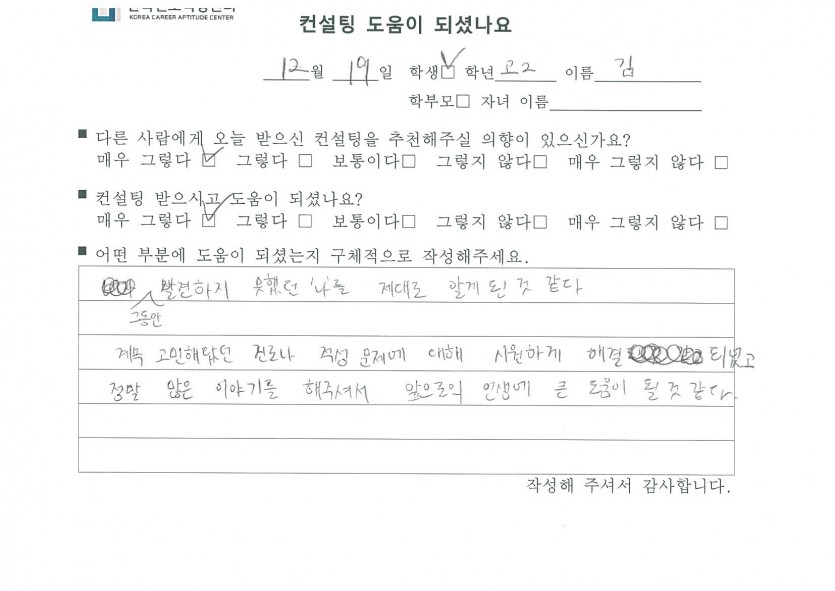 KOREA CAREER APTITUDE CENTER
컨설팅 도움이 되셨나요
12월 19일 학생☑ 학년 고2 이름 김
학부모□ 자녀 이름
■ 다른 사람에게 오늘 받으신 컨설팅을 추천해주실 의향이 있으신가요?
매우 그렇다 ☑ 그렇다 □ 보통이다□ 그렇지 않다□ 매우 그렇지 않다 □
■ 컨설팅 받으시고 도움이 되셨나요?
매우 그렇다 ☑ 그렇다 □ 보통이다□ 그렇지 않다□ 매우 그렇지 않다 □
■ 어떤 부분에 도움이 되셨는지 구체적으로 작성해주세요.
발견하지 못했던 '나'를 제대로 알게 된 것 같다
그동안
계속 고민해왔던 진로나 적성 문제에 대해 시원하게 해결 되었고
정말 많은 이야기를 해주셔서 앞으로의 인생에 큰 도움이 될 것 같다.
작성해 주셔서 감사합니다.